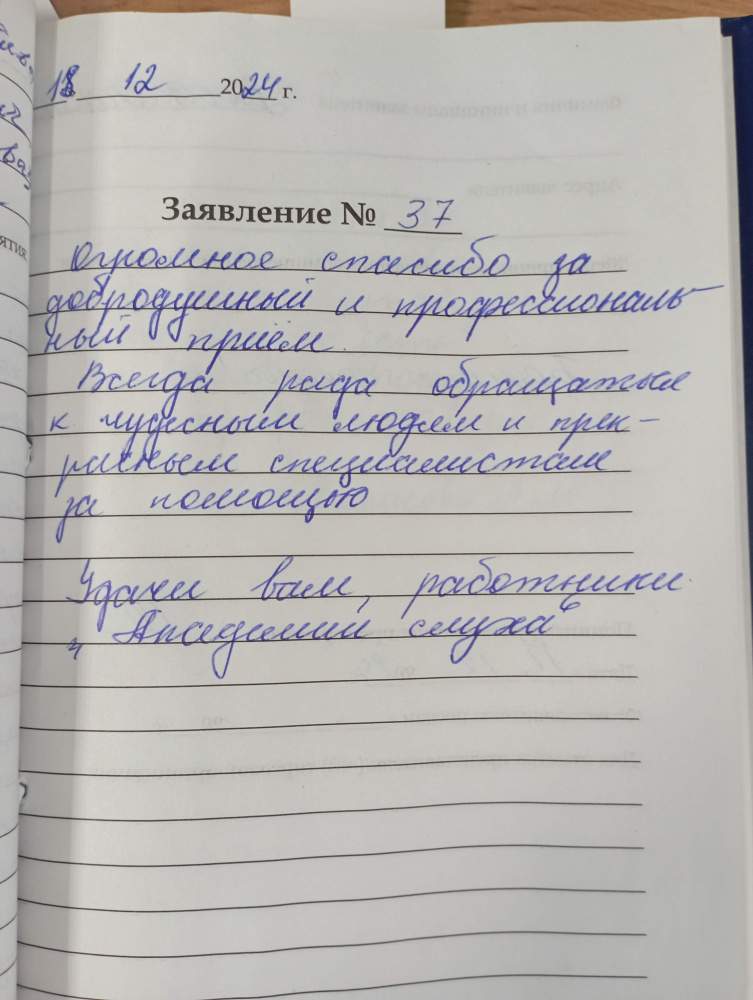 18 12 2024 г.
Заявление № 37
Огромное спасибо за
добродушный и профессиональ-
ный приём.
Всегда рада обращаться
к чудесным людям и прек-
расным специалистам
за помощью
Удачи вам, работники
„Академии слуха“